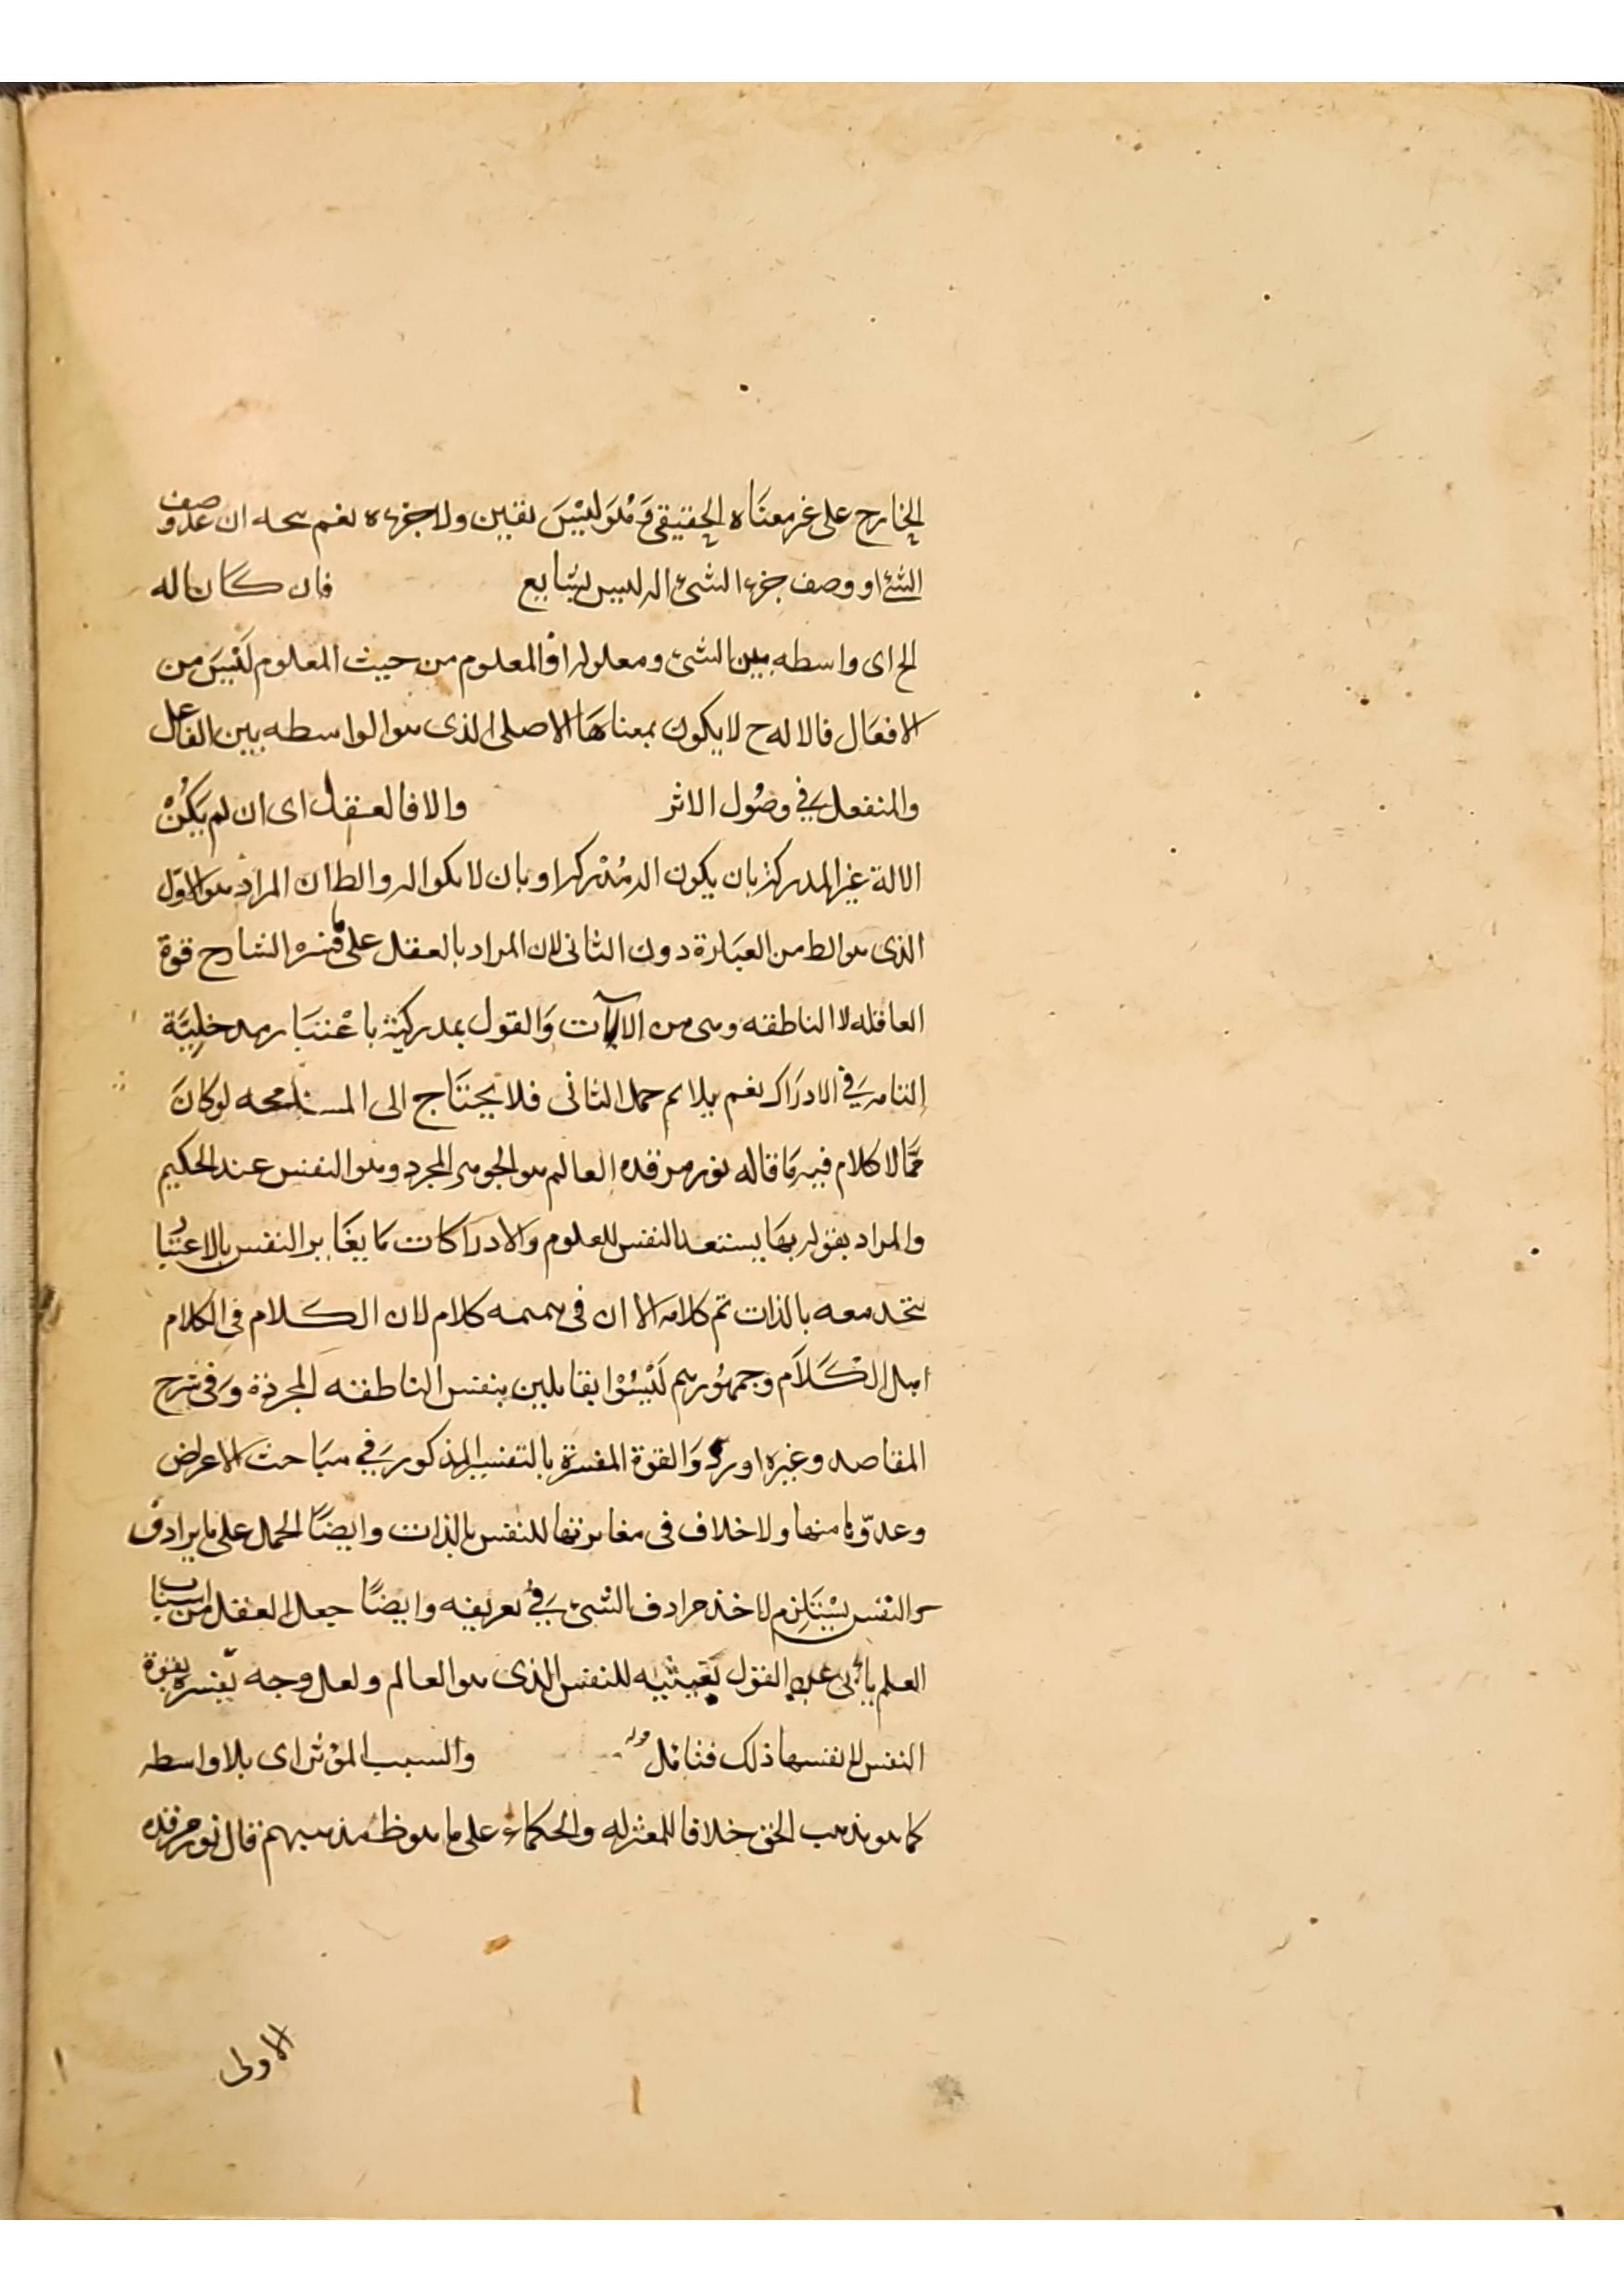 الخارج على غير معناه الحقيقى وَهُوَ لَيْسَ بقين ولا جزءه نعم يتجه ان عد وصف
الشئ او وصف جزء الشئ الى ليس بشايع فان كان اله
الخ اى واسطه بين الشئ ومعلوله اذ المعلوم من حيث المعلوم لَيْسَ من
الافعَال فالاله ح لا يكون بمعناهَا الاصلى الذى هو الواسطه بين الفاعل
والمنفعل فِي وصُول الاثر والا فالعقل اى ان لم يَكُنْ
الالة غير المدركة بان يكون اله مُدْركه او بان لا يكو اله والظ ان المراد هو الاول
الذى هو الظ من العبَارة دون الثانى لان المراد بالعقل على ما فسره الشارح قوة
العاقله لا الناطقه وهى من الالآت وَالقول بمدركيته باعْتبَار مدخلِيَّة
التامه فِي الادرَاك نعم يلايم حمل الثانى فلا يحتَاج الى المسامحه لو كَانَ
ممَّا لا كلام فيه مَا قاله نور مرقده العالم هو الجوهر المجرد وهو النفس عند الحكيم
والمراد بقوله بهَا يستعد النفس للعلوم والادرَاكات مَا يغَاير النفس بالاعتبار
يتحد معه بالذات تم كلامه الا ان فى كلام لان الكلام فِي الكلام
اهل الكَلَام وجمهُورهم لَيْسُوْا بقايلين بنفس الناطقه المجردة وَفى شرح
المقاصد وغيره اورد وَالقوة المفسرة بالتفسير المذكور فِي مبَاحث الاعراض
وعدّوها منها ولا خلاف فى مغايرتها للنفس بالذات وايضًا الحمل على ما يرادف
والنفس يسْتَلزم لاخذ مرادف الشئ فِي تعريفه وايضًا جعل العقل من اسباب
العلم يأبى عن القول بعينيته للنفس الذى هو العالم ولعل وجه تفسره بقوة
النفس لا نفسها ذلك فتامل قوله والسبب المؤثر اى بلا واسطه
كما هو مذهب الحق خلافا للمعتزله والحكمَاء على ما هو ظ مذهبهم قال نور مرقده
الاولى